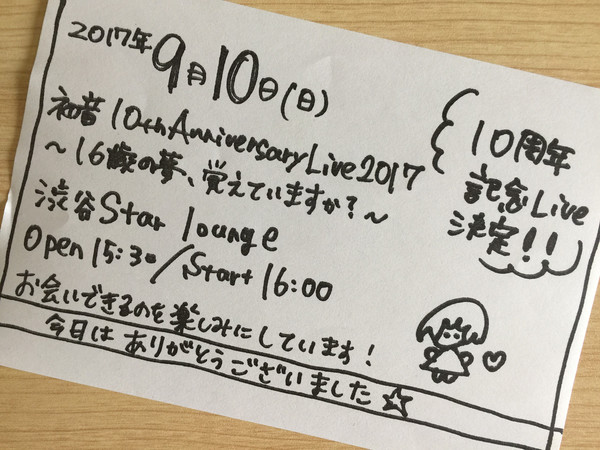 2017年9月10日(日)
初音 10th Anniversary Live 2017
〜16歳の夢、覚えていますか?〜
渋谷Star lounge
Open 15:30/Start 16:00
お会いできるのを楽しみにしています!
今日は ありがとうございました☆
10周年
記念Live
決定!!